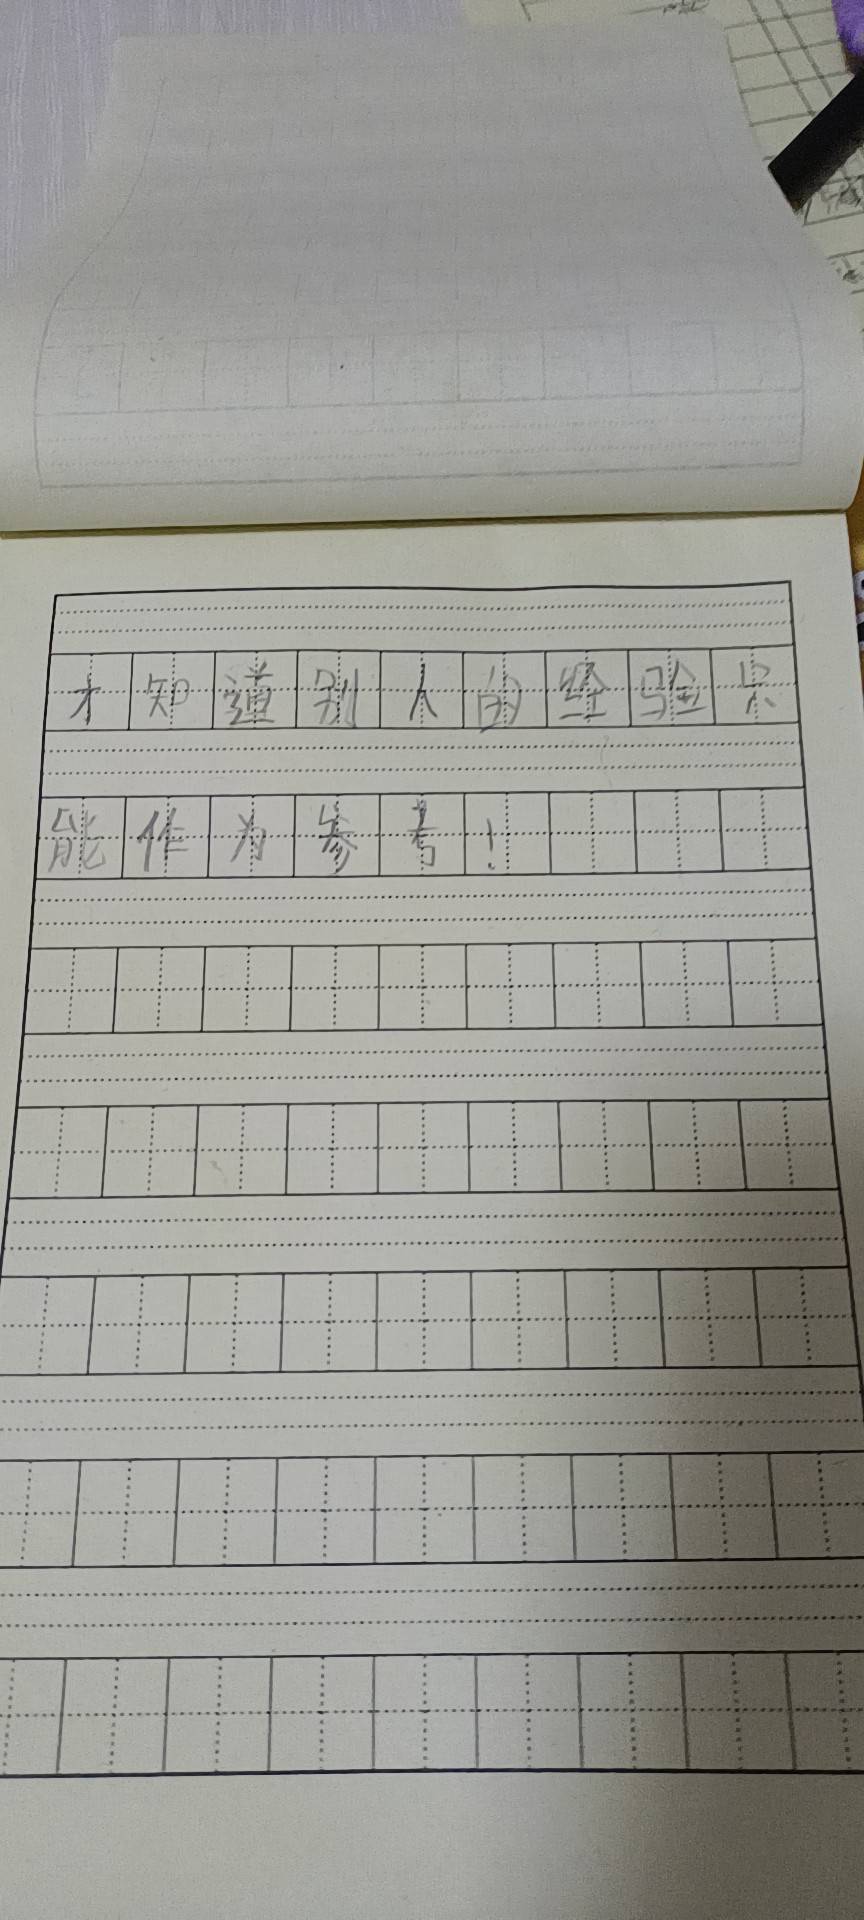 才知道别人的经验只
能作为参考!